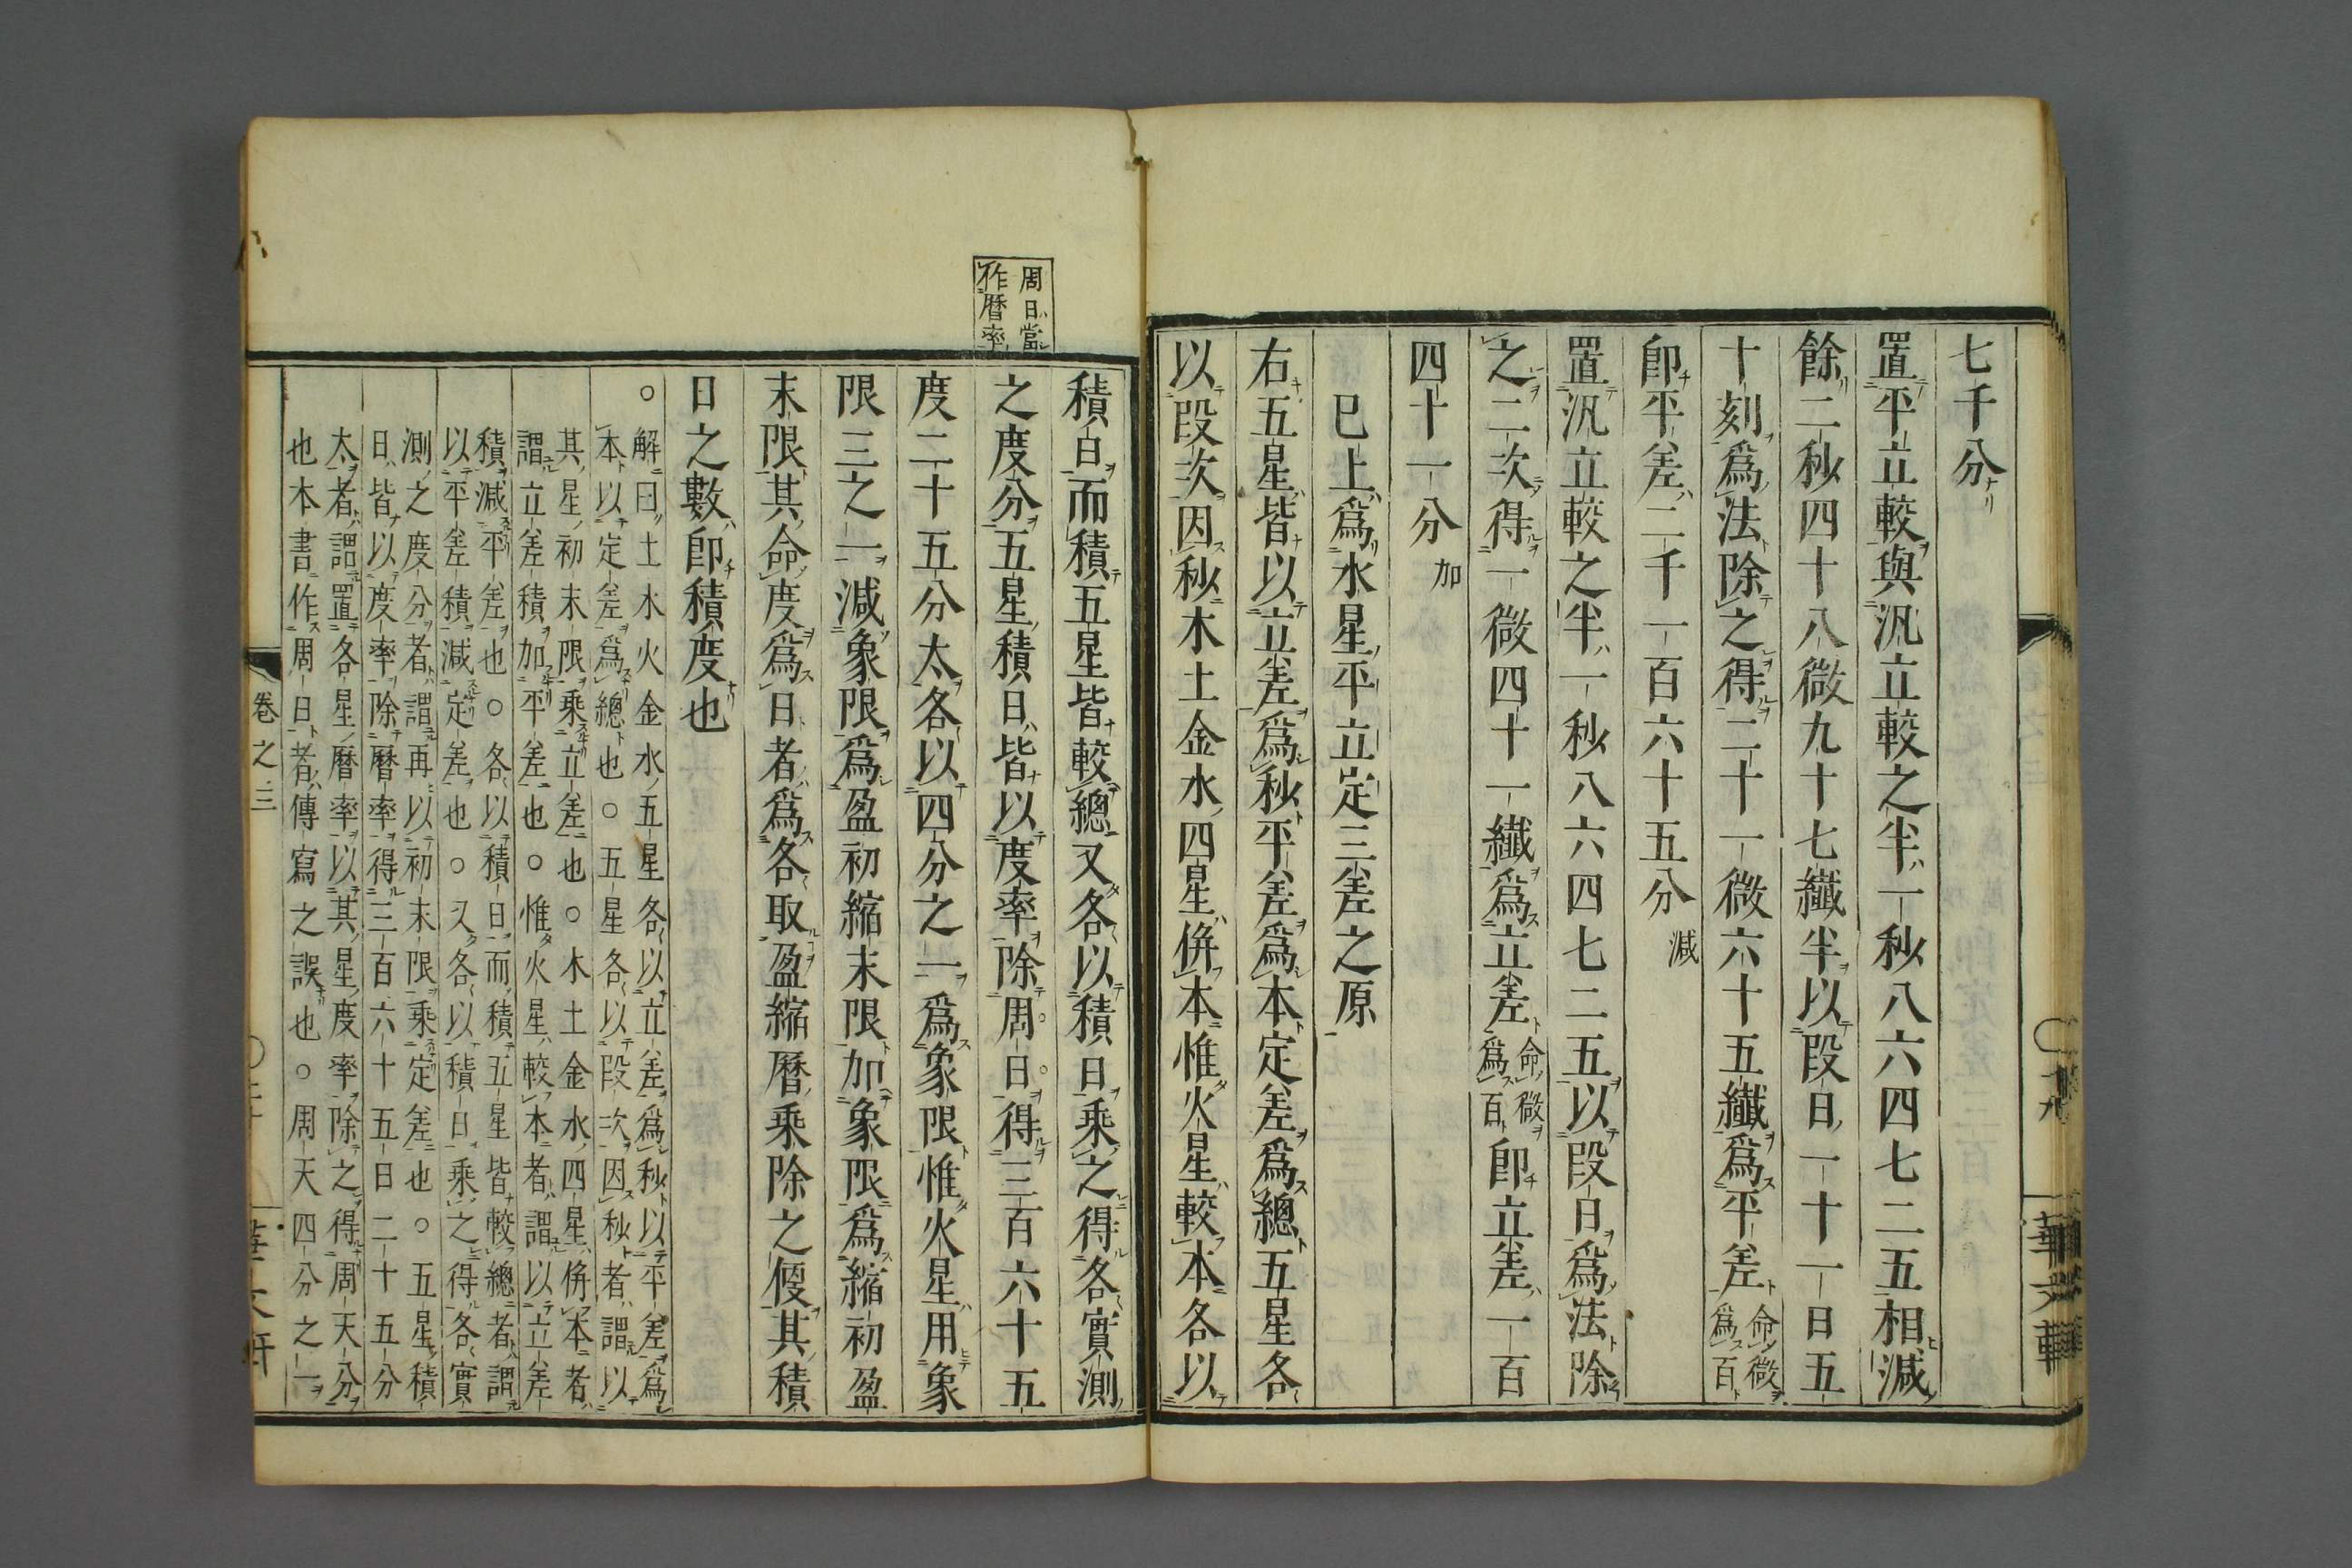 七千分
置平立較與汎立較之半一秒八六四七二五相減
餘二秒四十八微九十七纖半以段日一十一日五
十刻爲法除之得二十一微六十五纖爲平差命微爲百
卽平差二千一百六十五分減
置汎立較之半一秒八六四七二五以段日爲法除
之二次得一微四十一纖爲立差命微爲百卽立差一百
四十一分加
已上爲水星平立定三差之原
右五星皆以立差爲秒平差爲本定差爲總五星各
以段次因秒木土金水四星倂本惟火星較本各以
周日當
作曆率
積白而積五星皆較總又各以積日乘之得各實測
之度分五星積日皆以度率除周日得三百六十五
度二十五分太各以四分之一爲象限惟火星用象
限三之一減象限爲盈初縮末限加象限爲縮初盈
末限其命度爲日者爲各取盈縮曆乘除之便其積
日之數卽積度也
○解曰土木火金水五星各以立差爲秒以平差爲
本以定差爲總也○五星各以段次因秒者謂以
其星初末限乘立差也○木土金水四星倂本者
謂立差積加平差也○惟火星較本者謂以立差
積減平差也○各以積日而積五星皆較總者謂
以平差積減定差也○又各以積日乘之得各實
測之度分者謂再以初末限乘定差也○五星積
日皆以度率除曆率得三百六十五日二十五分
太者謂置各星曆率以其星度率除之得周天分
也本書作周日者傳寫之誤也○周天四分之一
卷之三